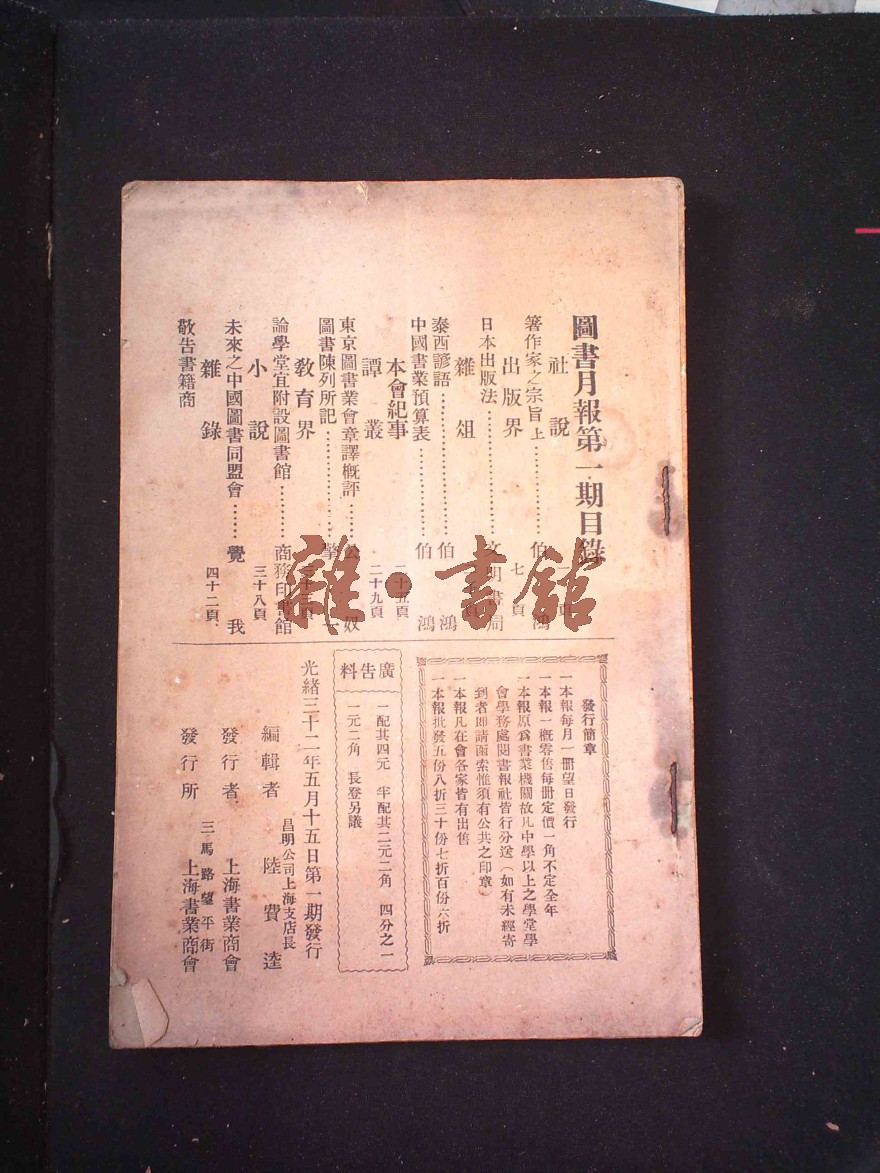 圖書月報第一期目錄
社說
箸作家之宗旨 上 伯鴻
出版界 七頁
日本出版法 文明書局
雜俎
泰西諺語 伯鴻
中國書業預算表 伯鴻
本會紀事 二十五頁
譚叢 二十九頁
東京圖書業會章譯概評 公奴
圖書陳列所記
教育界
論學堂宜附設圖書館 商務印書館
小說 三十八頁
未來之中國圖書同盟會 覺我
雜錄 四十二頁
敬告書籍商
發行簡章
一本報每月一冊望日發行
一本報一概零售每冊定價一角不定全年
一本報原爲書業機關故凡中學以上之學堂學
會學務處閱書報社皆行分送(如有未經寄
到者即請函索惟須有公共之印章)
一本報凡在會各家皆有出售
一本報批發五份八折三十份七折百份六折
廣告料
一配其四元 半配其二元二角 四分之一
一元二角 長登另議
光緒三十二年五月十五日第一期發行
編輯者 昌明公司上海支店長 陸費逵
發行者 上海書業商會
發行所 三馬路望平街 上海書業商會
雜·書館